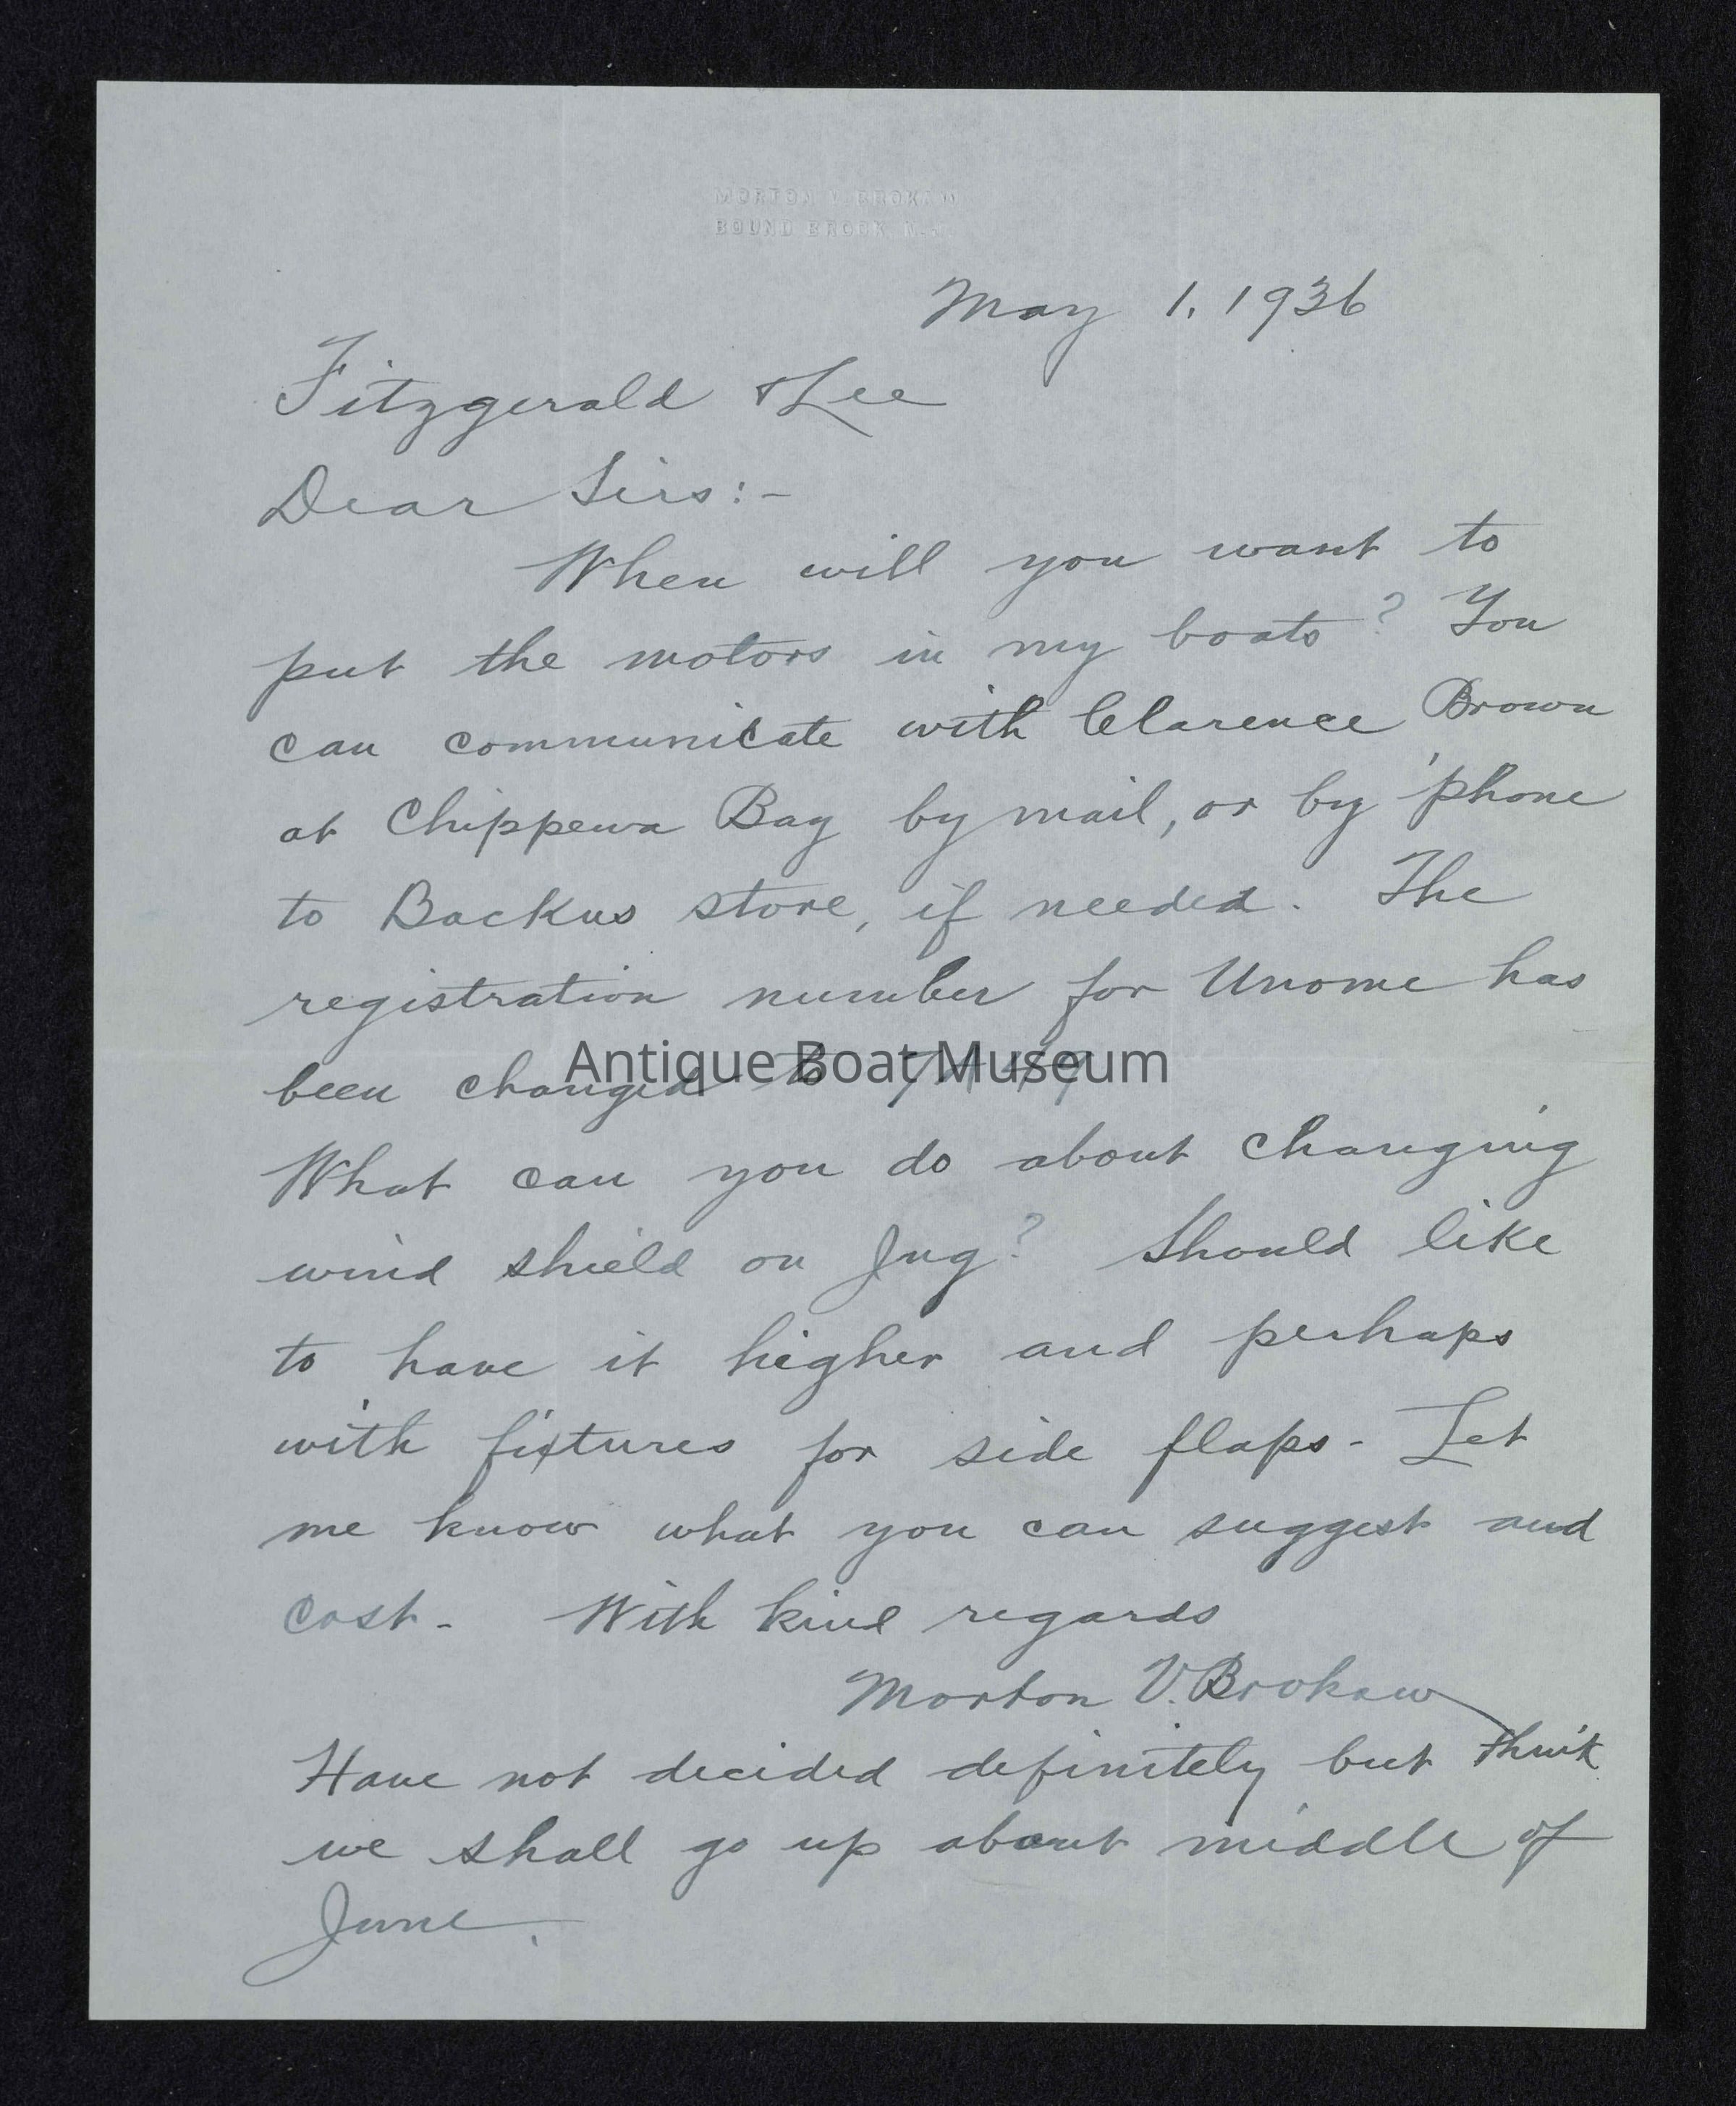 MORTON V. BROKAW
BOUND BROOK N.J.
May 1, 1936
Fitzgerald & Lee
Dear Sirs:-
When will you want to
put the motors in my boats? You
can communicate with Clarence Brown
at Chippewa Bay by mail, or by 'phone
to Backus store, if needed. The
registration number for Unome has
been changed to
Antique Boat Museum
What can you do about changing
wind shield on Jug? Should like
to have it higher and perhaps
with fixtures for side flaps - Let
me know what you can suggest and
cost - With kind regards
Morton V. Brokaw
Have not decided definitely but think
we shall go up about middle of
June.